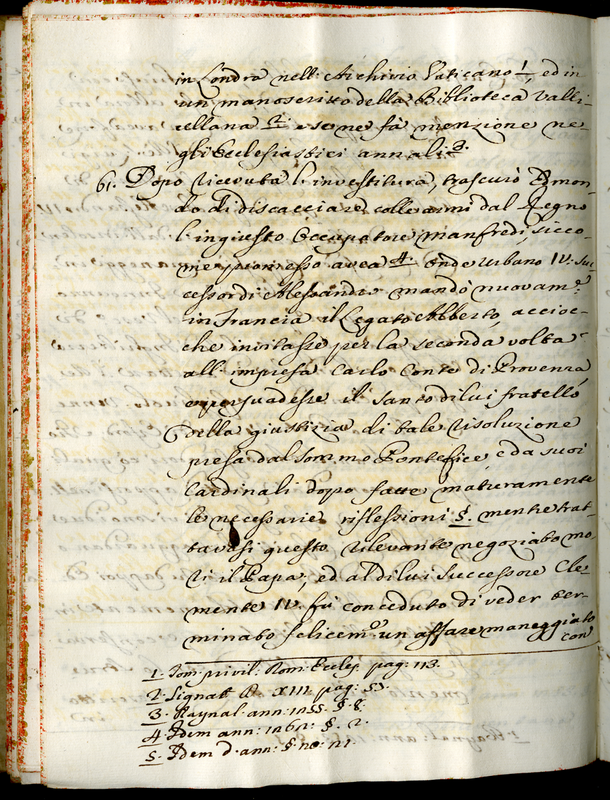 in Londra nell: Archivio Vaticano 1., ed in
un manoscritto della Biblioteca Valli-
cellana 2. e se ne fà menzione ne-
gli Ecclesiastici annali 3.
61. Dopo ricevuta l'investitura, trascurò Edmon-
do di discacciare colle armi dal Regno
l'ingiusto Occupatore Manfredi, sicco-
me promesso avea 4. Onde Urbano IV. Suc-
cessor di Alessandro mandò nuovam.e
in Francia il Legato Alberto, accioc-
che invitasse per la seconda volta
all'impresa Carlo Conte di Provenza
e persuadesse il Santo di lui fratello
della giustizia di tale risoluzione
presa dal Sommo Pontefice, e da suoi
Cardinali dopo fatte maturamente
le necessarie riflessioni 5. mentre trat-
tavasi questo rilevante negoziato mo-
rì il Papa, ed al di lui Successore Cle-
mente IV. fù conceduto di veder ter-
minato felicem.e un affare maneggiato
con
1. Tom: privil: Rom: Eccles. pag: 113.
2. Signat B. XIII pag: 53.
3. Raynal: ann: 1255. §. 8.
4. Idem ann: 1262: §. 2.
5. Idem d. ann: §. 20: 21.